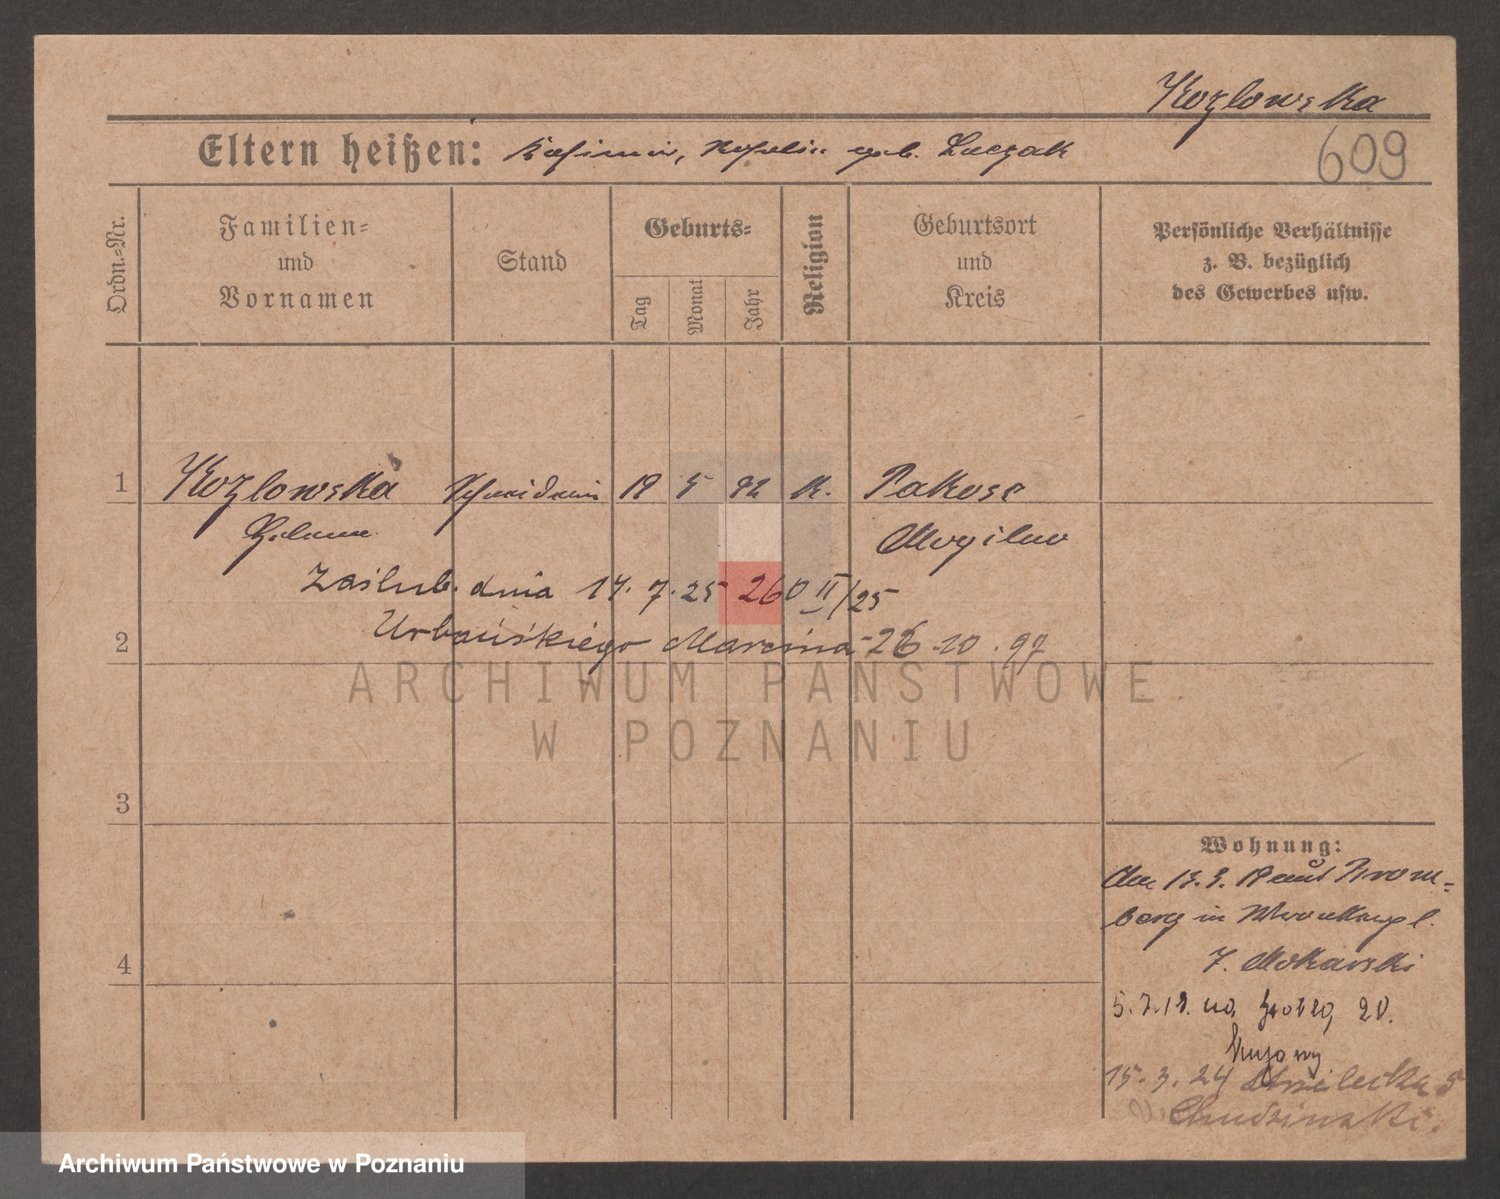 Kozlowska
609
Eltern heißen: Kasimir, geb. Luczak
Ordn.-Nr.
Familien-
und
Vornamen
Stand
Geburts-
Tag
Monat
Jahr
Religion
Geburtsort
und
Kreis
Persönliche Verhältnisse
z. B. bezüglich
des Gewerbes usw.
1
Kozlowska Schneiderin 18 5 92 K. Pakosc
Helene Mogilno
Zaślub. dnia 14. 7. 25 260 II/25
2
Urbańskiego Marcina 26-10.97
ARCHIWUM PAŃSTWOWE
W POZNANIU
3
4
Wohnung:
Brom-
berg in
J. Mokarski
5.7.19. na 20.
15.3.24 Strzelecka 5
Chudzinski.
Archiwum Państwowe w Poznaniu